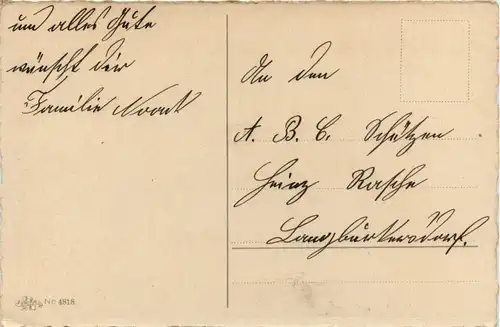 und alles Gute
wünscht dir
Familie Noack
An den
A. B. C. Schützen
Heinz Rasche
Langburkersdorf.
No 4818